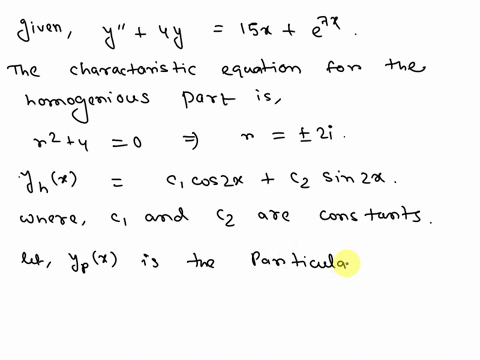 given, y" + 4y = 15x + e^{7x}.
The charactoristic equation for the
homogenious part is,
r²+4 = 0 ⇒ r = ± 2i.
y_h(x) = c₁ cos2x + c₂ sin2x.
where, c₁ and c₂ are constants.
let, y_p(x) is the Particula